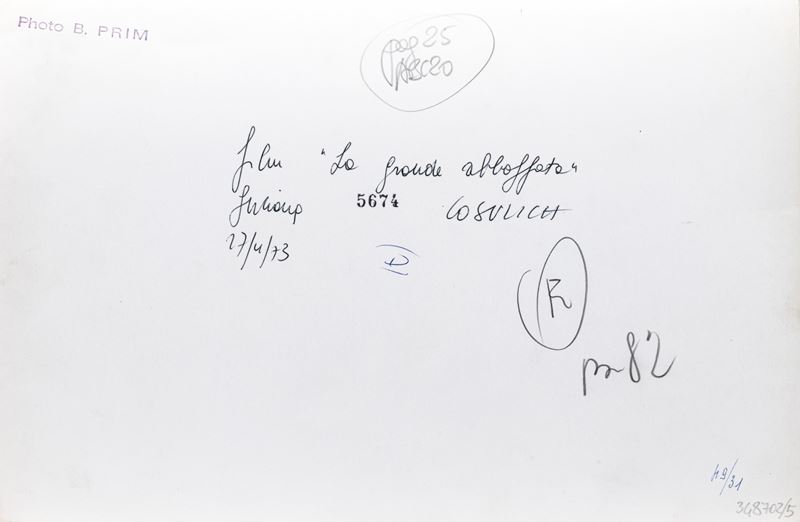 Photo B. PRIM
pag 25
ABC20
film "La grande abboffata"
5674 COSULICH
27/4/73
D
R
82
49/31
348702/5